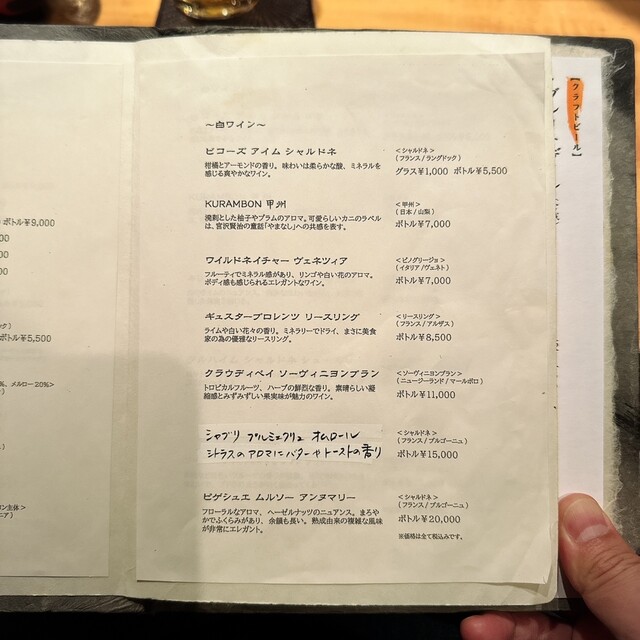 ～白ワイン～
ビコーズ アイム シャルドネ
柑橘とアーモンドの香り。味わいは柔らかな酸、ミネラルを
感じる爽やかなワイン。
＜シャルドネ＞
（フランス/ラングドック）
グラス¥1,000 ボトル¥5,500
KURAMBON 甲州
溌剌とした柚子やプラムのアロマ。可愛らしいカニのラベル
は、宮沢賢治の童話「やまなし」への共感を表す。
＜甲州＞
（日本/山梨）
ボトル¥7,000
ワイルドネイチャー ヴェネツィア
フルーティでミネラル感があり、リンゴや白い花のアロマ。
ボディ感も感じられるエレガントなワイン。
＜ピノグリージョ＞
（イタリア/ヴェネト）
ボトル¥7,000
ギュスターブロレンツ リースリング
ライムや白い花々の香り。ミネラリーでドライ、まさに美食
家の為の優雅なリースリング。
＜リースリング＞
（フランス/アルザス）
ボトル¥8,500
クラウディベイ ソーヴィニヨンブラン
トロピカルフルーツ、ハーブの鮮烈な香り。素晴らしい凝
縮感とみずみずしい果実味が魅力のワイン。
＜ソーヴィニヨンブラン＞
（ニュージーランド/マールボロ）
ボトル¥11,000
シャブリ プルミエクリュ オムロール
シトラスのアロマにバターやトーストの香り
＜シャルドネ＞
（フランス/ブルゴーニュ）
ボトル¥15,000
ビゲシュエ ムルソー アンヌマリー
フローラルなアロマ、ヘーゼルナッツのニュアンス。まろや
かでふくらみがあり、余韻も長い。熟成由来の複雑な風味
が非常にエレガント。
＜シャルドネ＞
（フランス/ブルゴーニュ）
ボトル¥20,000
※価格は全て税込みです。
ボトル¥9,000
ボトル¥5,500
メルロー20%＞
【クラフトビール】